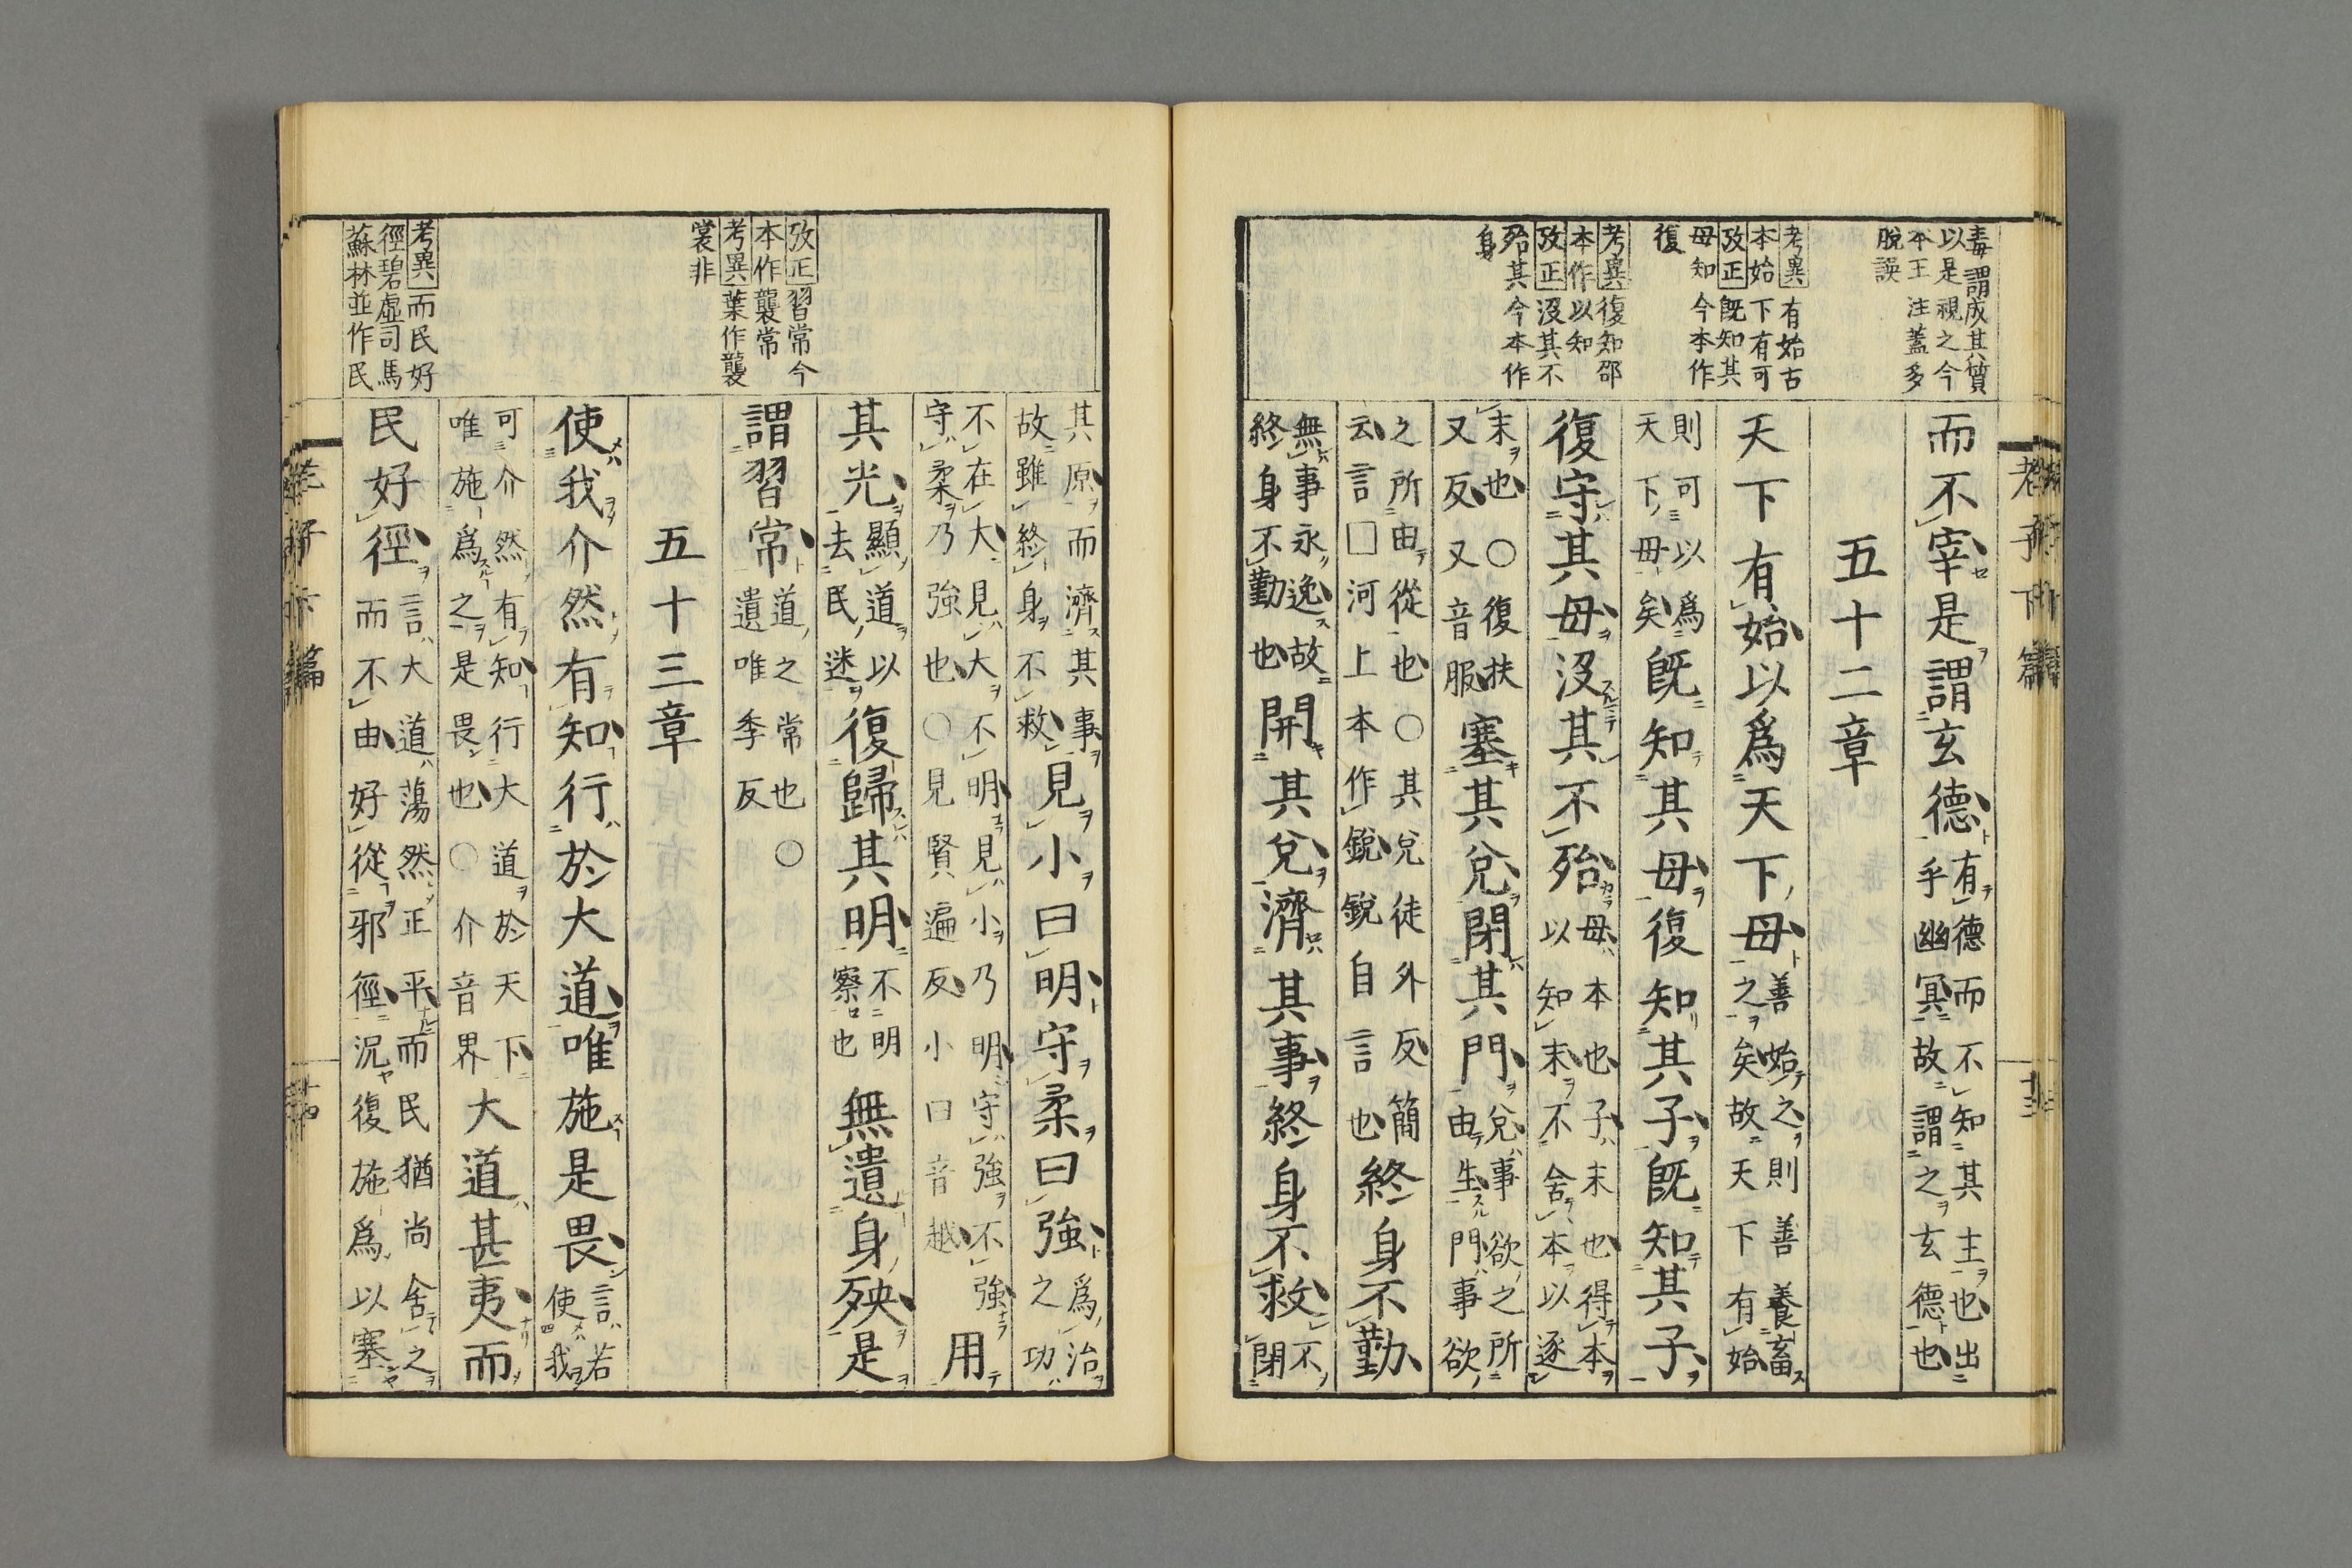 老子下篇
毒謂成其質
以是視之今
本王注蓋多
脫誤
考異有始古
本始下有可
攷正既知其
母知今本作
復
考異復知邵
本作以知
攷正沒其不
殆其今本作
身
而不宰是謂玄德有德而不知其主也出乎幽冥故謂之玄德也
五十二章
天下有始以爲天下母善始之則善養畜之矣故天下有始
則可以爲天下母矣既知其母復知其子既知其子
復守其母沒其不殆母本也子末也得本以知末不舍本以逐
末也○復扶又反又音服塞其兌閉其門兌事欲之所由生門事欲
之所由從也○其兌徒外反簡云言□河上本作銳銳自言也終身不勤
無事永逸故終身不勤也開其兌濟其事終身不救不閉
攷正習常今
本作襲常
考異葉作襲
裳非
考異而民好
徑碧虛司馬
蘇林並作民
其原而濟其事故雖終身不救見小曰明守柔曰強爲治之功
不在大見大不明見小乃明守強不強守柔乃強也○見賢遍反小曰音越用
其光顯道以去民迷復歸其明不明察也無遺身殃是
謂習常道之常也○遺唯季反
五十三章
使我介然有知行於大道唯施是畏言若使我
可介然有知行大道於天下唯施爲之是畏也○介音界大道甚夷而
民好徑言大道蕩然正平而民猶尚舍之而不由好從邪徑況復施爲以塞
老子下篇